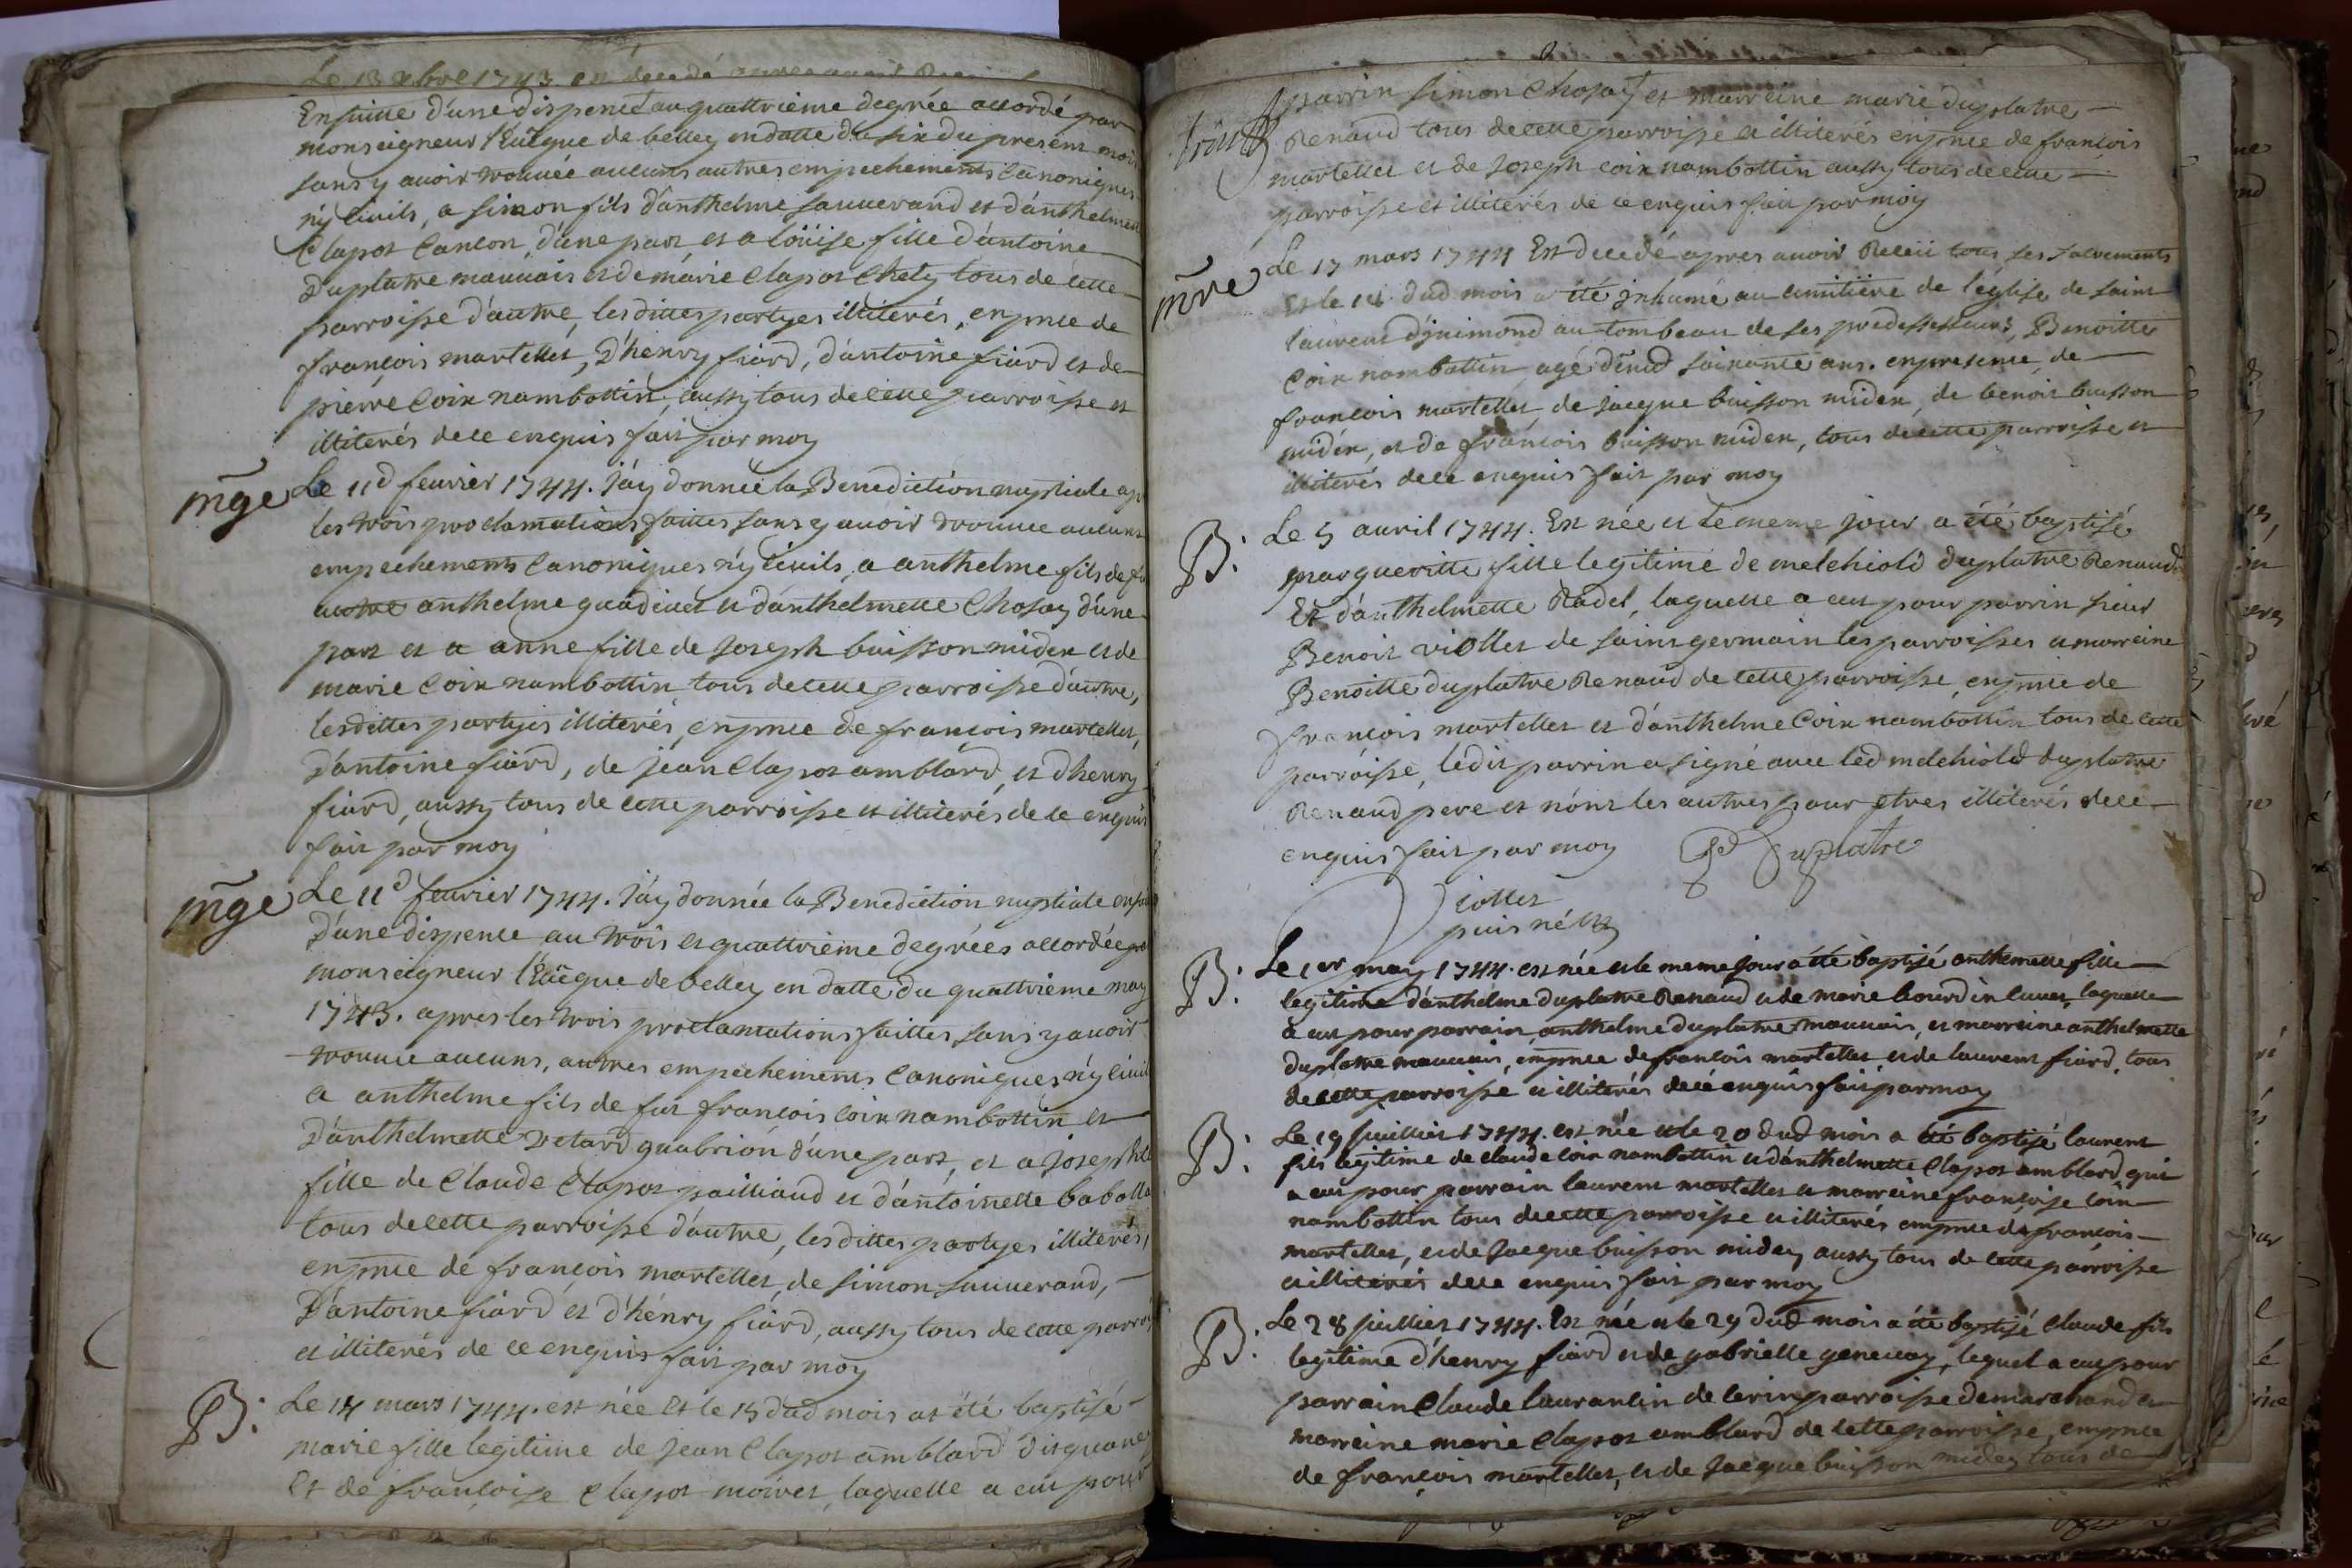 Le 13 xbre 1743 est decedé apres avoir
Ensuitte d'une dispence au quattrieme degrée accordé par
monseigneur l'Evêque de belley en datte du six du present mois
sans y avoir trouvée aucuns autres empechements Canoniques
n'y Civils, a simon fils d'anthelme sauverand et d'anthelmette
Clapot Canton, d'une part et a loüise fille d'antoine
Duplatre mauvais et de marie Clapot Chety tous de cette
parroisse d'autre, les dittes partyes illiterés, en pnce de
françois martellet, D'henry fiard, d'antoine fiard et de
pierre Coix nambottin, aussy tous de cette parroisse et
illiterés de ce enquis fait par moy
mge Le 11d fevrier 1744. j'ay donnée la Benediction nuptiale apr
les trois proclamations faittes sans y avoir trouvee aucuns
empechements Canoniques n'y Civils, a anthelme fils de fu
autre anthelme guadivet et d'anthelmette Chosay d'une
part et a anne fille de Joseph buisson midex et de
marie Coix nambottin tous de cette parroisse d'autre,
les dittes partyes illiterés, en pnce de françois martellet,
D'antoine fiard, de jean Clapot amblard, et d'henry
fiard, aussy tous de cette parroisse et illiterés de ce enquis
fait par moy
mge Le 11d fevrier 1744. j'ay donnée la Benediction nuptiale ensu
D'une dispence au trois et quattrieme degrées accordée par
monseigneur l'Evêque de belley en datte du quattrieme may
1743. apres les trois proclamations faittes sans y avoir
trouvee aucuns, autres empechements Canoniques n'y Civil
a anthelme fils de fut françois Coix nambottin et
D'anthelmette Vetard guabrion d'une part, et a Josephte
fille de Claude Clapot pailliaud et d'antoinette babolla
tous de cette parroisse d'autre, les dittes partyes illiterés,
en pnce de françois martellet, de simon sauverand,
D'antoine fiard et d'henry fiard, aussy tous de cette parroi
et illiterés de ce enquis fait par moy
B. Le 14 mars 1744. est née et le 15 dud mois at été baptisé
marie fille legitime de jean Clapot amblard Disquanet
Et de françoise Clapot moiret, laquelle a eut pour
parrin simon Chosay et marreine marie duplatre
Renaud tous de cette parroisse et illiterés en pnce de françois
martellet et de Joseph coix nambottin aussy tous de cette
parroisse et illiterés de ce enquis fait par moy
mre Le 17 mars 1744 Est decedé apres avoir Receü tous ses sacrements
Et le 18 dud mois a été inhumé au cimitière de l'église de saint
laurent d'jzimond au tombeau de ses predesseseurs, Benoitte
Coix nambottin agé d'envd soixante ans. en presence de
françois martellet de jacque buisson midex, de benoit buisson
midex, et de françois buisson midex, tous de cette parroisse et
illiterés de ce enquis fait par moy
B. Le 5 avril 1744. Est née et le meme jour a été baptisé
margueritte fille legitime de melchiold duplatre Renaud
Et d'anthelmette Radel, laquelle a eut pour parrin sieur
Benoit viollet de saint germain les parroisses et marreine
Benoitte duplatre Renaud de cette parroisse, en pnce de
françois martellet et d'anthelme Coix nambottin tous de cette
parroisse, ledit parrin a signé avec led melchiold duplatre
Renaud pere et n'ont les autres pour etres illiterés de ce
enquis fait par moy Duplatre
Viollet
puis né
B. Le 1er may 1744. est née et le meme jour a été baptisé anthemette fille
legitime d'anthelme duplatre Renaud et de marie bourdin luvet, laquelle
a eut pour parrain anthelme duplatre mauvais, et marreine anthelmette
duplatre mauvais, en pnce de françois martellet et de laurent fiard, tous
de cette parroisse et illiterés de ce enquis fait par moy
B. Le 19 juillier 1744. est née et le 20 dud mois a été baptisé laurent
fils legitime de claude Coix nambottin et d'anthelmette Clapot amblard qui
a eut pour parrain laurent martellet et marreine françoise Coix
nambottin tous de cette parroisse et illiterés en pnce de françois
martellet, et de Jacque buisson midex, aussy tous de cette parroisse
et illiterés de ce enquis fait par moy
B. Le 28 juillier 1744. Est née et le 29 dud mois a été baptisé Claude fils
legitime d'henry fiard et de gabrielle genevay, lequel a eut pour
parrain Claude laurantin de lerin parroisse de marchand et
marreine marie Clapot amblard de cette parroisse, en pnce
de françois martellet, et de Jacque buisson midex, tous de